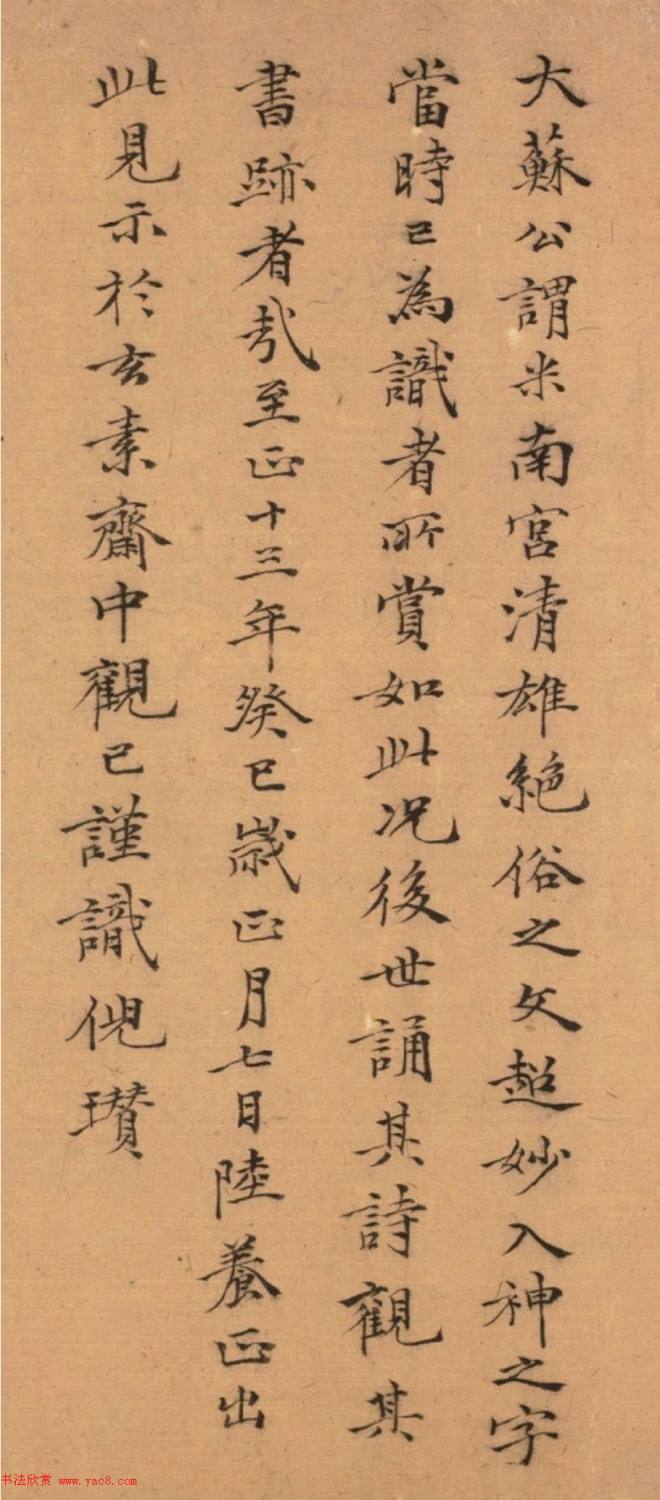 大蘇公謂米南宮清雄絕俗之文超妙入神之字
當時已為識者所賞如此况後世誦其詩觀其
書跡者哉至正十三年癸巳歲正月七日陸養正出
此見示於玄素齋中觀已謹識倪瓚
书法欣赏 www.yac8.com